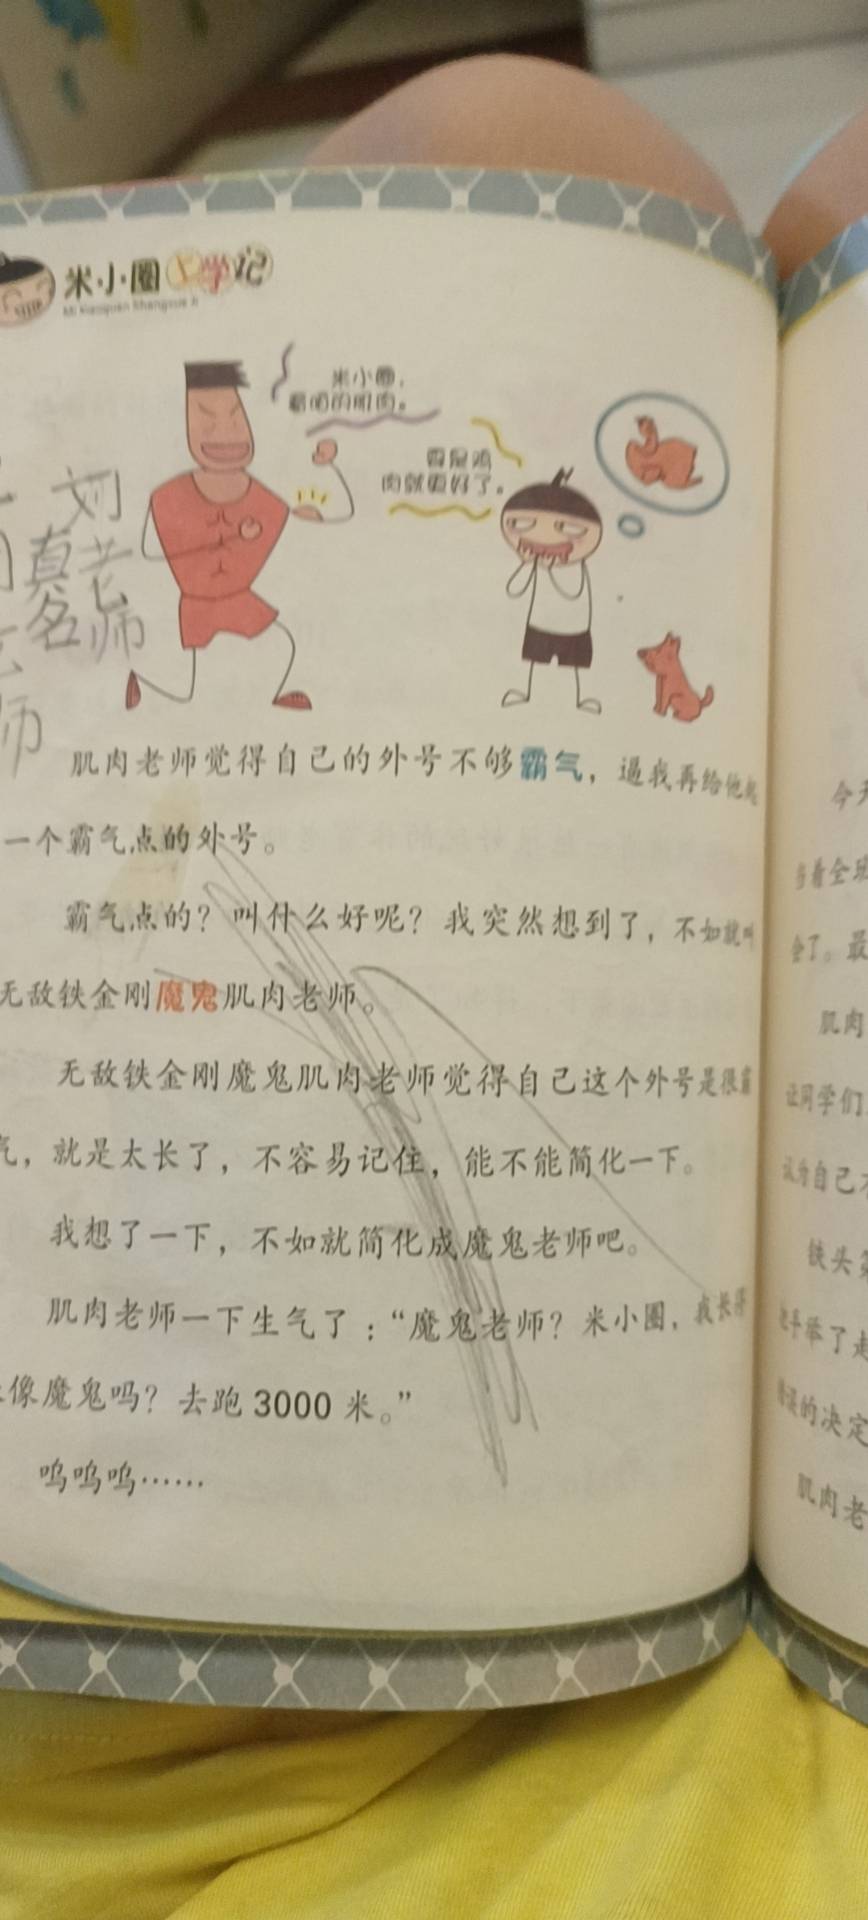 米小圈上学记
Mi Xiaoquan Shangxue Ji
米小圈，
看咱的肌肉。
要是鸡
肉就更好了。
刘老师
真名
师
肌肉老师觉得自己的外号不够霸气，逼我再给他起
一个霸气点的外号。
霸气点的？叫什么好呢？我突然想到了，不如就叫
无敌铁金刚魔鬼肌肉老师。
无敌铁金刚魔鬼肌肉老师觉得自己这个外号是很霸
气，就是太长了，不容易记住，能不能简化一下。
我想了一下，不如就简化成魔鬼老师吧。
肌肉老师一下生气了：“魔鬼老师？米小圈，我长得
像魔鬼吗？去跑3000米。”
呜呜呜……
今天
当着全班
会了。最
肌肉
让同学们
认为自己
铁头
把手举了
错误的决定
肌肉老